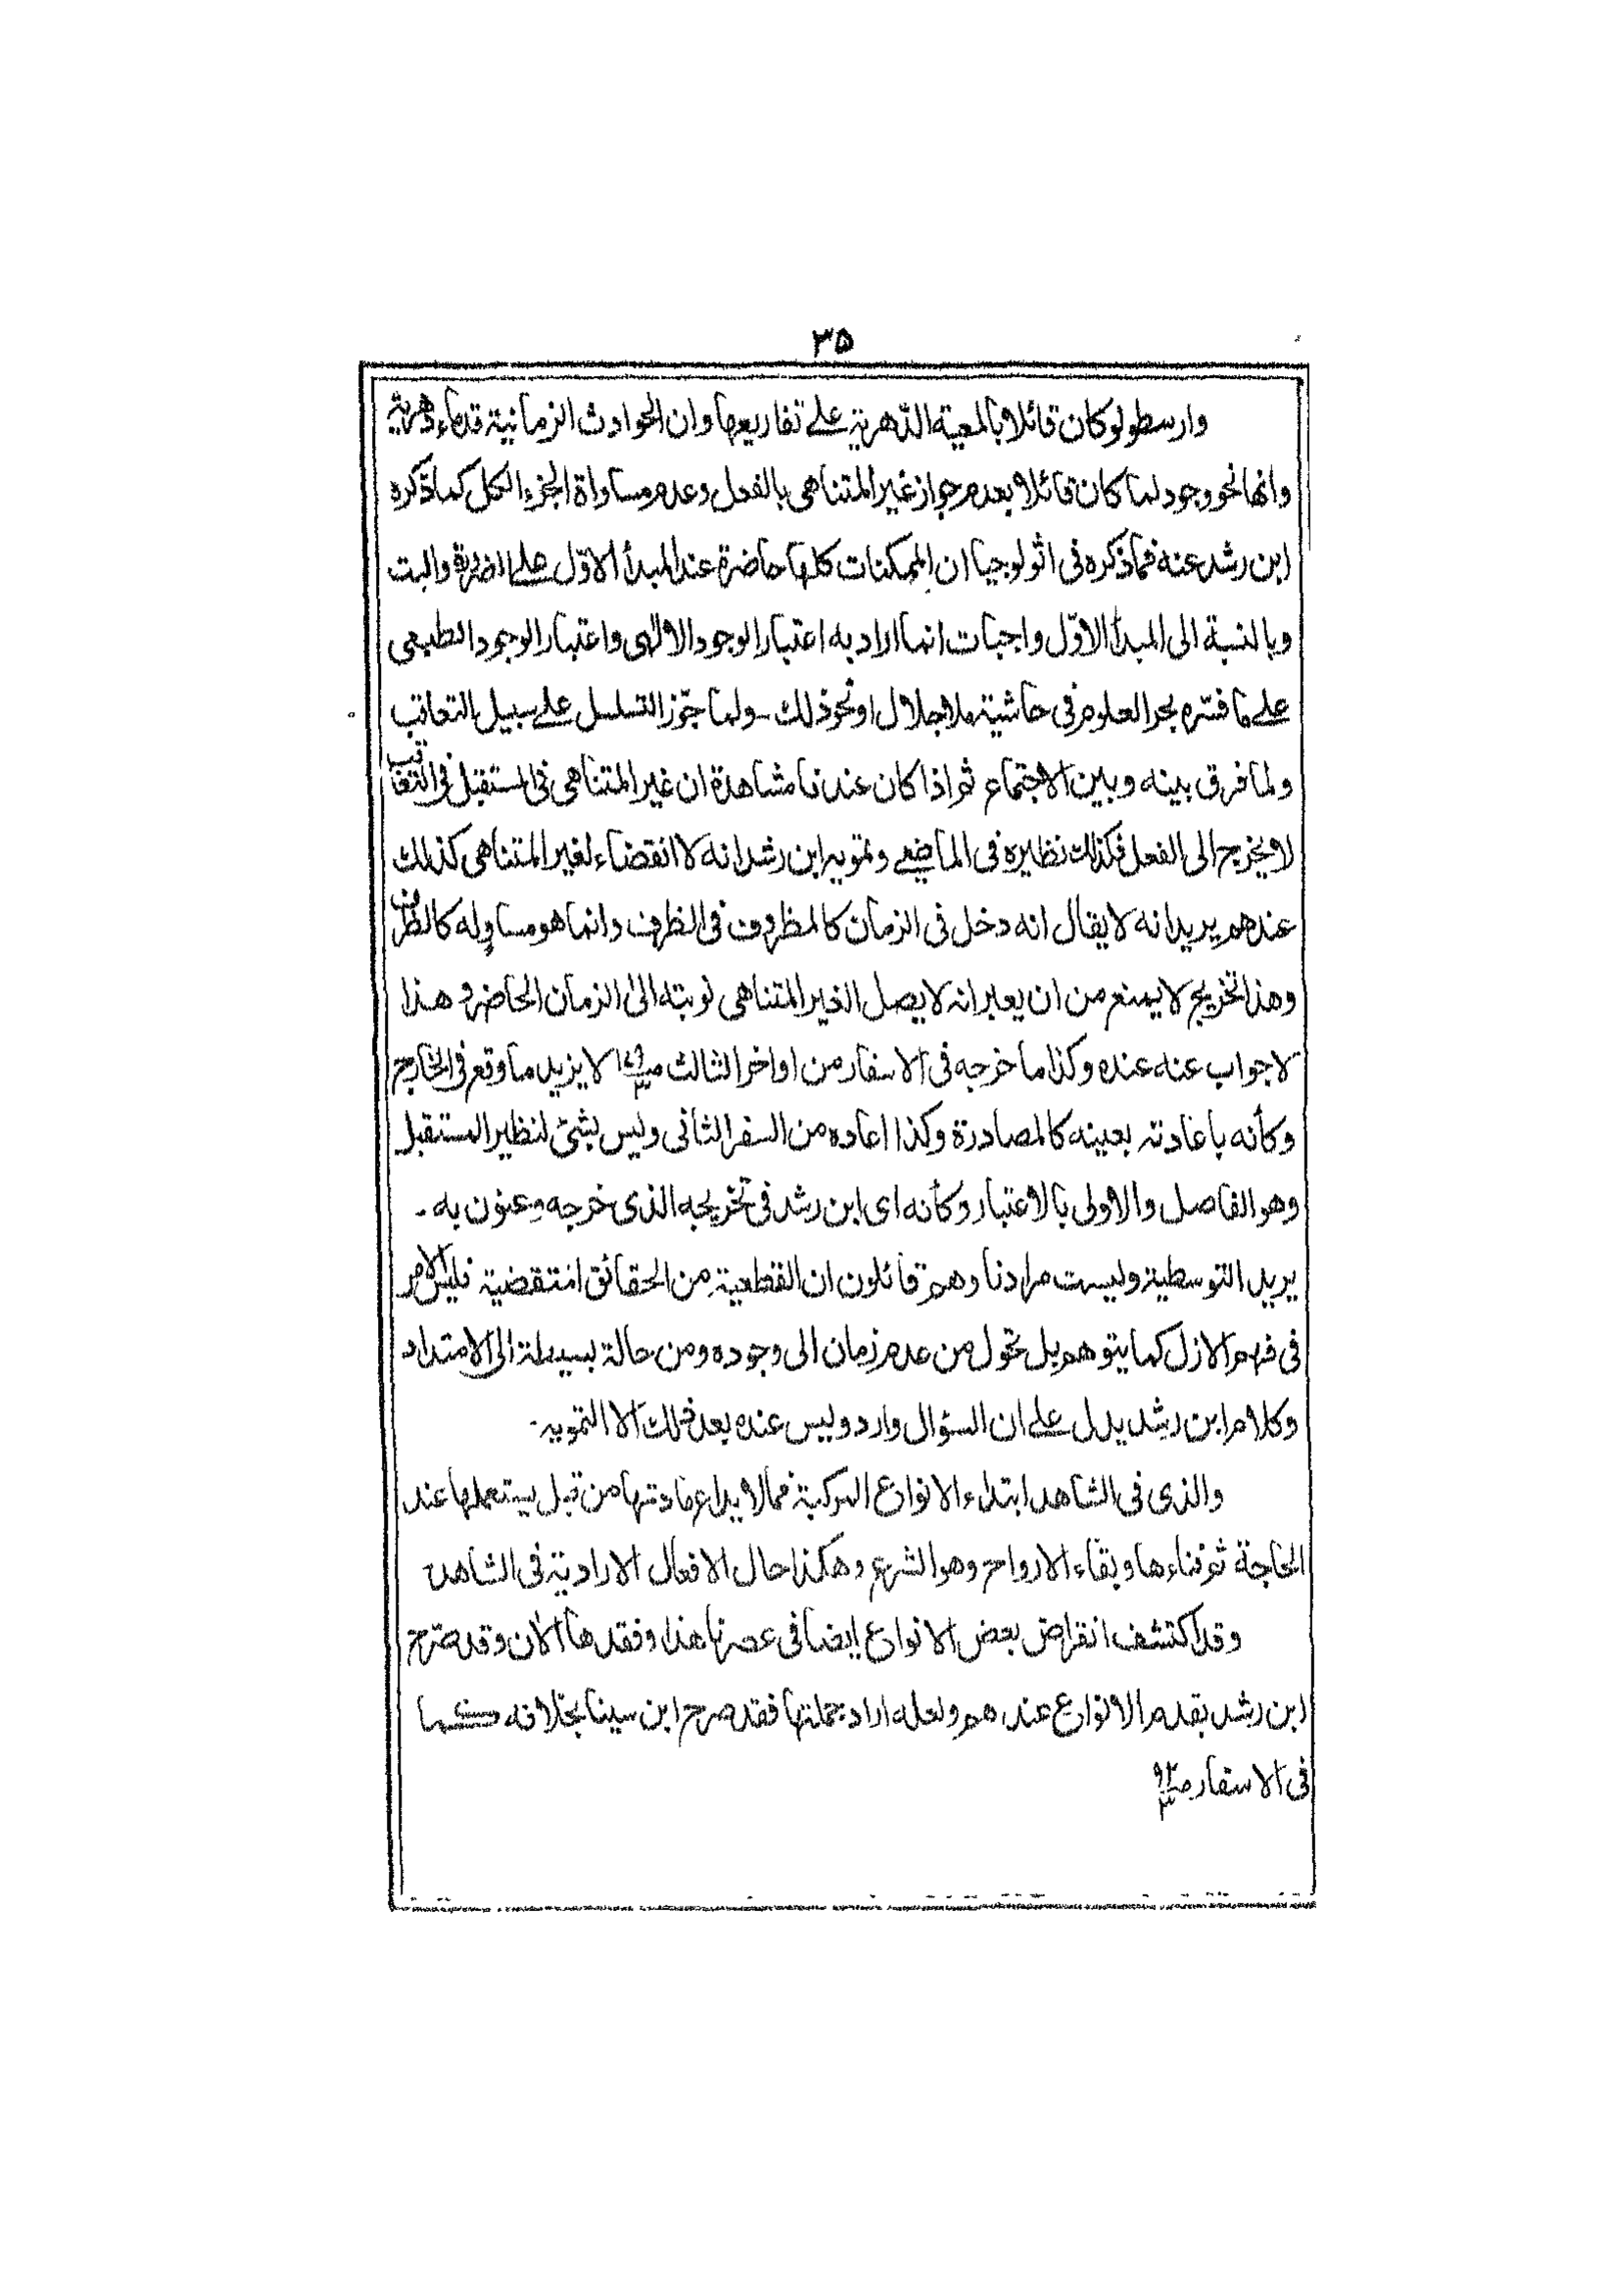 ۳۵
وارسطو لو كان قائلا بالمعية الدّهرية على تفاريعها وان الحوادث الزمانية قدماء دهرية
وانها نحو وجود لما كان قائلا بعدم جواز غير المتناهى بالفعل وعدم مساواة الجزء الكل كما ذكره
ابن رشد عنه فما ذكره فى اثولوجيا ان الممكنات كلها حاضرة عند المبدأ الاوّل على الضرورة والبت
وبالنسبة الى المبدأ الاوّل واجبات انما اراد به اعتبار الوجود الالهى واعتبار الوجود الطبعى
على ما فسّره بحر العلوم فى حاشية ملا جلال او نحو ذلك - ولما جوّز التسلسل على سبيل التعاقب
ولما فرق بينه وبين الاجتماع ثم اذا كان عندنا مشاهدة ان غير المتناهى فى المستقبل فى التعاقب
لا يخرج الى الفعل فكذلك نظيره فى الماضى وتمويه ابن رشد انه لا انقضاء لغير المتناهى كذلك
عندهم يريد انه لا يقال انه دخل فى الزمان كالمظروف فى الظرف وانما هو مساوٍ له كالظرف
وهذا تخريج لا يمنع من ان يعبر انه لا يصل الغير المتناهى نوبته الى الزمان الحاضر وهذا
لا جواب عنه عنده وكذا ما خرجه فى الاسفار من اواخر الثالث لا يزيد ما وقع فى الخارج
وكأنه باعادته بعينه كالمصادرة وكذا اعاده من السفر الثانى وليس بشئ لنظير المستقبل
وهو الفاصل والاولى بالاعتبار وكأنه اى ابن رشد فى تخريجه الذى خرجه وعنون به -
يريد التوسطية وليست مرادنا وهم قائلون ان القطعية من الحقائق المتقضية فليس الامر
فى فهم الازل كما يتوهم بل تحول من عدم زمان الى وجوده ومن حالة بسيطة الى الامتداد
وكلام ابن رشد يدل على ان السؤال وارد وليس عنده بعد ذلك الا التمويه -
والذى فى الشاهد ابتداء الانواع المركبة فمالا يدع مادتها من قبل يستعملها عند
الحاجة ثم فناءها وبقاء الارواح وهو الشرع وهكذا حال الافعال الارادية فى الشاهد
وقد اكتشف انقراض بعض الانواع ايضا فى عصرنا هذا وفقدها الان وقد صرح
ابن رشد بقدم الانواع عندهم ولعله اراد جملتها فقد صرح ابن سينا بخلافه كما
فى الاسفار